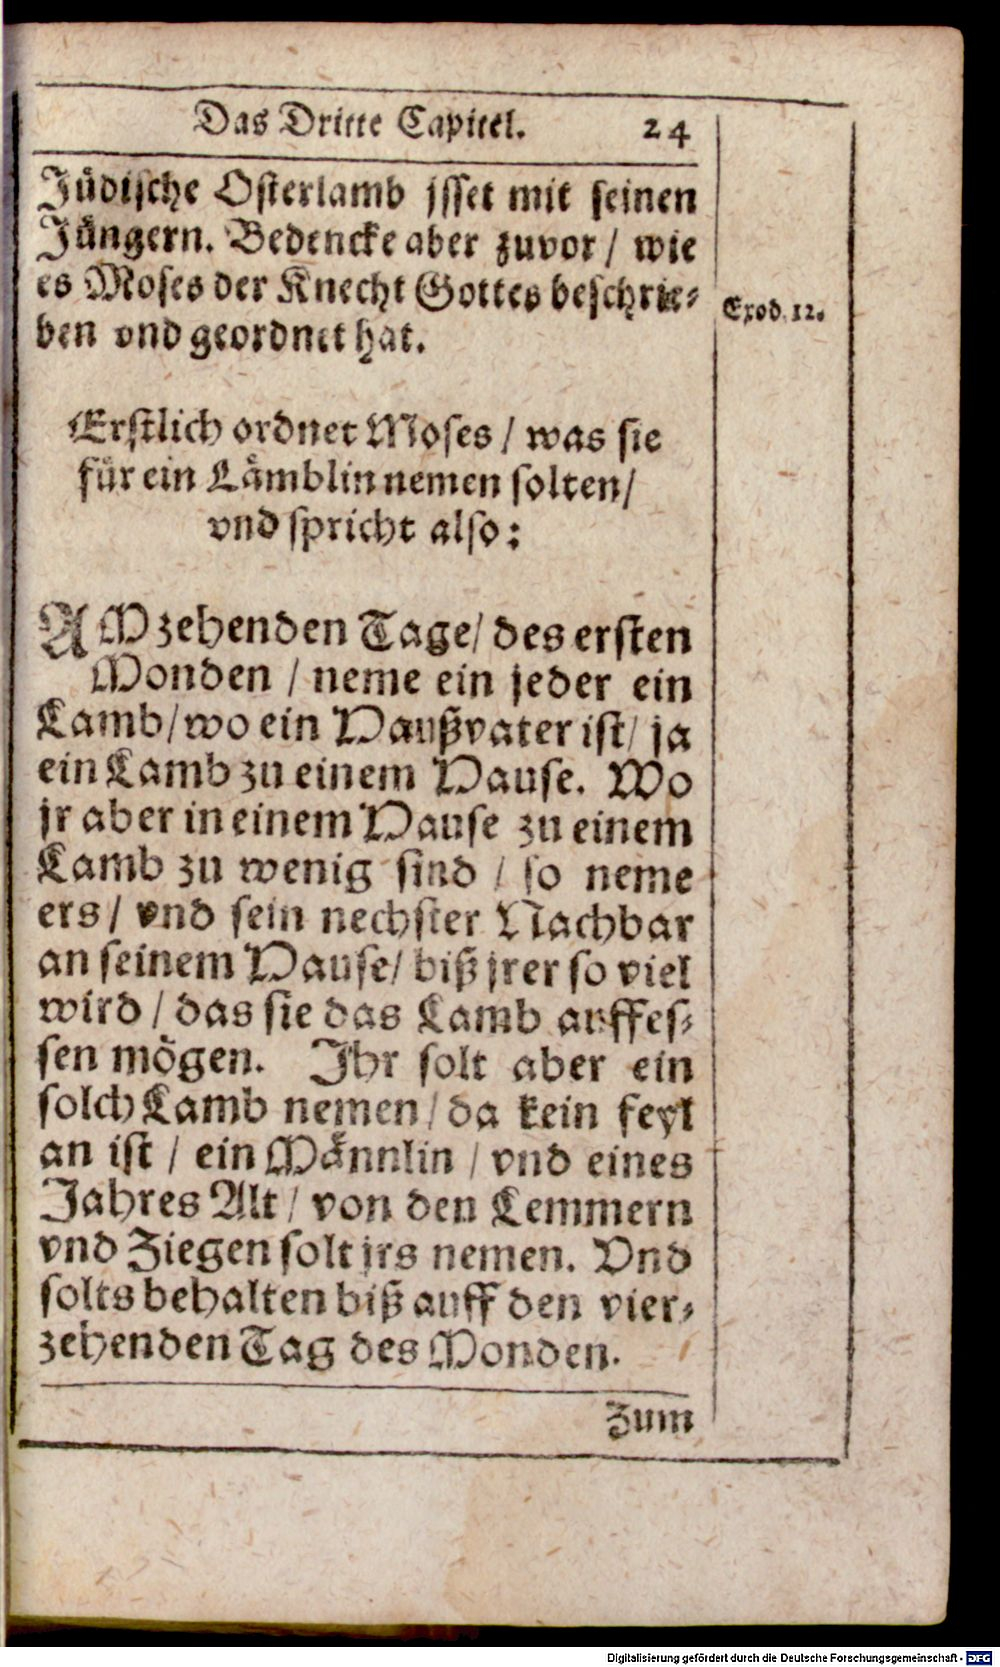 Das Dritte Capitel. 24
Jüdische Osterlamb jsset mit seinen
Jüngern. Bedencke aber zuvor / wie
es Moses der Knecht Gottes beschrie-
ben vnd geordnet hat.
Exod. 12.
Erstlich ordnet Moses / was sie
für ein Lämblin nemen solten /
vnd spricht also:
AM zehenden Tage / des ersten
Monden / neme ein jeder ein
Lamb / wo ein Haußvater ist / ja
ein Lamb zu einem Hause. Wo
jr aber in einem Hause zu einem
Lamb zu wenig sind / so neme
ers / vnd sein nechster Nachbar
an seinem Hause / biß jrer so viel
wird / das sie das Lamb auffes-
sen mögen. Ihr solt aber ein
solch Lamb nemen / da kein feyl
an ist / ein Männlin / vnd eines
Jahres Alt / von den Lemmern
vnd Ziegen solt jrs nemen. Vnd
solts behalten biß auff den vier-
zehenden Tag des Monden.
Zum
Digitalisierung gefördert durch die Deutsche Forschungsgemeinschaft - DFG